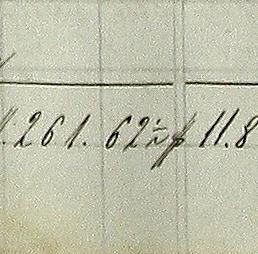 261. 62½ 11.8